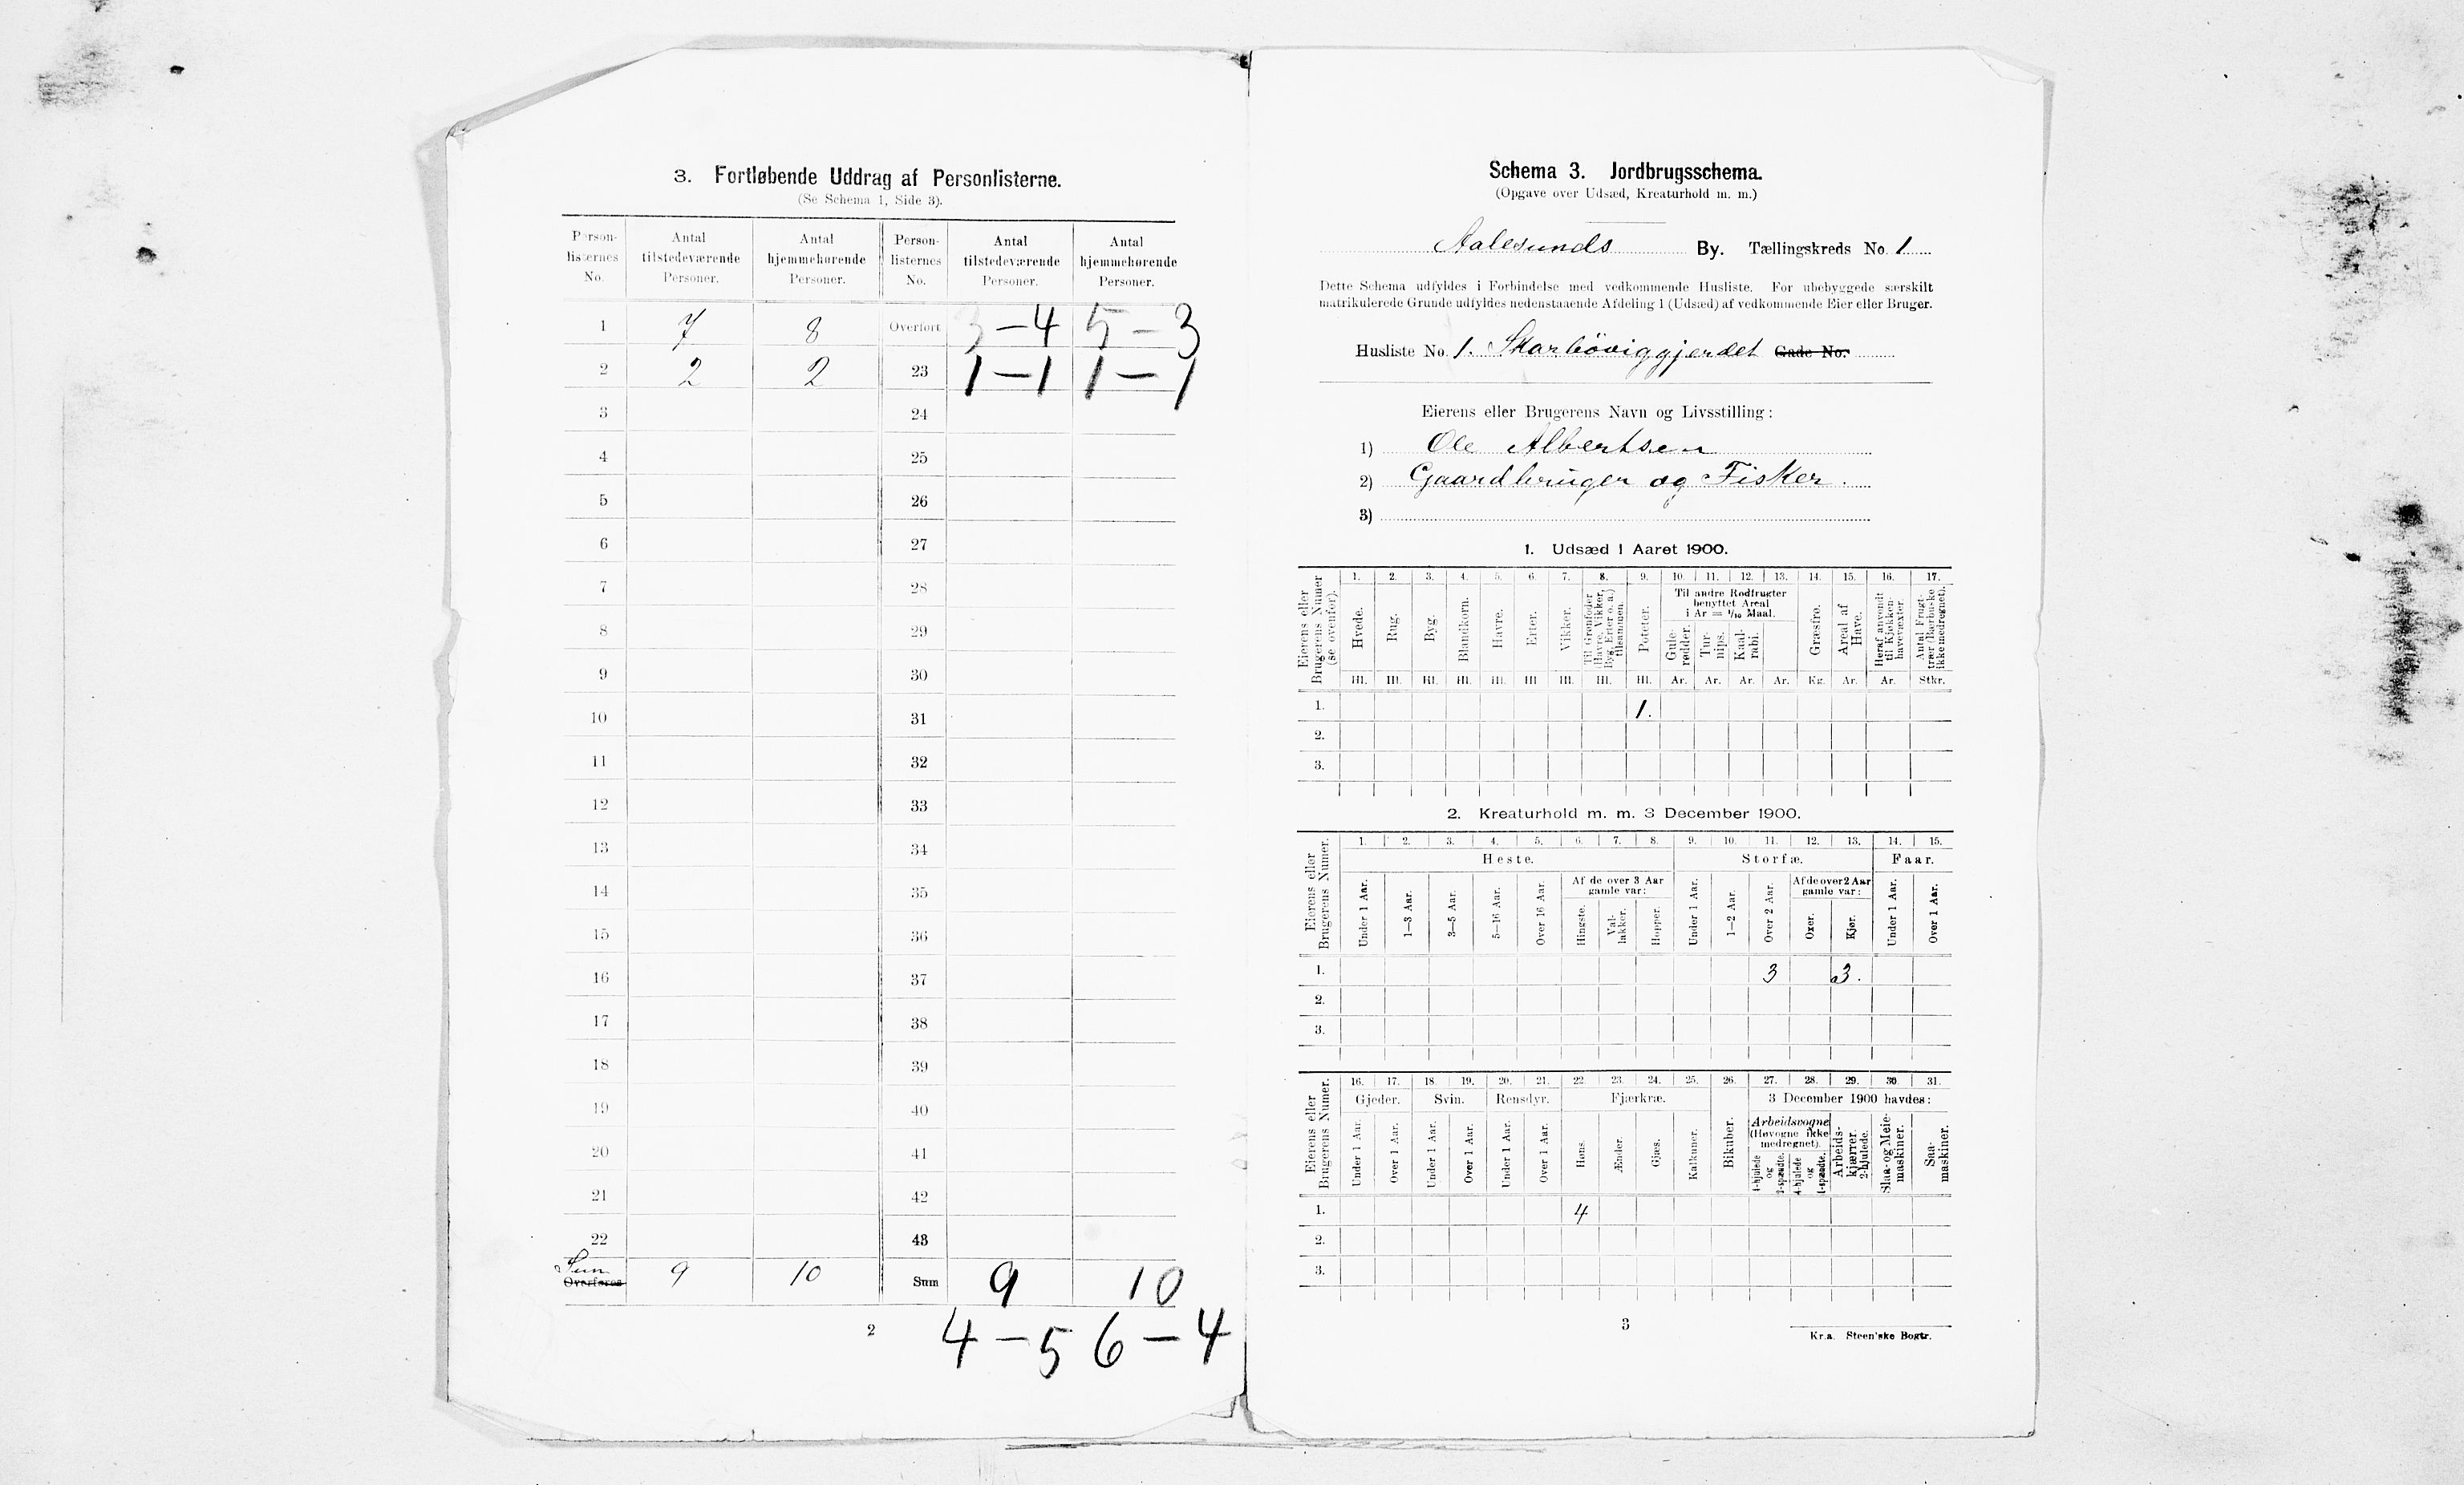 3. Fortløbende Uddrag af Personlisterne.
(Se Schema 1, Side 3).
Person-listernes No. Antal tilstedeværende Personer. Antal hjemmehørende Personer. Person-listernes No. Antal tilstedeværende Personer. Antal hjemmehørende Personer.
1 7 8 Overført 3–4 5–3
2 2 2 23 1–1 1–1
3 24
4 25
5 26
6 27
7 28
8 29
9 30
10 31
11 32
12 33
13 34
14 35
15 36
16 37
17 38
18 39
19 40
20 41
21 42
22 43
Sum
Overføres 9 10 Sum 9 10
2 4–5 6–4
Schema 3. Jordbrugsschema.
(Opgave over Udsæd, Kreaturhold m. m.)
Aalesunds By. Tællingskreds No. 1
Dette Schema udfyldes i Forbindelse med vedkommende Husliste. For ubebyggede særskilt
matrikulerede Grunde udfyldes nedenstaaende Afdeling 1 (Udsæd) af vedkommende Eier eller Bruger.
Husliste No. 1. Skarbøviggjerdet Gade No.
Eierens eller Brugerens Navn og Livsstilling:
1) Ole Albertsen
2) Gaardbruger og Fisker.
3)
1. Udsæd i Aaret 1900.
1. 2. 3. 4. 5. 6. 7. 8. 9. 10. 11. 12. 13. 14. 15. 16. 17.
Eierens eller Brugerens Numer (se ovenfor).
Hvede. Rug. Byg. Blandkorn. Havre. Erter. Vikker. Til Grønfoder (Havre, Vikker, Byg, Erter o. a.) tilsammen. Poteter.
Til andre Rodfrugter
benyttet Areal
i Ar = 1/10 Maal.
Gule-rødder. Tur-nips. Kaal-rabi. Græsfrø. Areal af Have. Heraf anvendt til Kjøkken-havevæxter. Antal Frugt-trær (Bærbuske ikke medregnet).
Hl. Hl. Hl. Hl. Hl. Hl. Hl. Hl. Hl. Ar. Ar. Ar. Ar. Kg. Ar. Ar. Stkr.
1. 1.
2.
3.
2. Kreaturhold m. m. 3 December 1900.
1. 2. 3. 4. 5. 6. 7. 8. 9. 10. 11. 12. 13. 14. 15.
Eierens eller Brugerens Numer.
Heste. Storfæ. Faar.
Af de over 3 Aar gamle var: Af de over 2 Aar gamle var:
Under 1 Aar. 1–3 Aar. 3–5 Aar. 5–16 Aar. Over 16 Aar. Hingste. Val-lakker. Hopper. Under 1 Aar. 1–2 Aar. Over 2 Aar. Oxer. Kjør. Under 1 Aar. Over 1 Aar.
1. 3 3.
2.
3.
16. 17. 18. 19. 20. 21. 22. 23. 24. 25. 26. 27. 28. 29. 30. 31.
Eierens eller Brugerens Numer.
Gjeder. Svin. Rensdyr. Fjærkræ. 3 December 1900 havdes:
Arbeidsvogne (Høvogne ikke medregnet).
Under 1 Aar. Over 1 Aar. Under 1 Aar. Over 1 Aar. Under 1 Aar. Over 1 Aar. Høns. Ænder. Gjæs. Kalkuner. Bikuber. 4-hjulede og 2-spændte. 4-hjulede og 1-spændte. Arbeids-kjærrer, 2-hjulede. Slaa- og Meie-maskiner. Saa-maskiner.
1. 4
2.
3.
3
Kr.a. Steen'ske Bogtr.